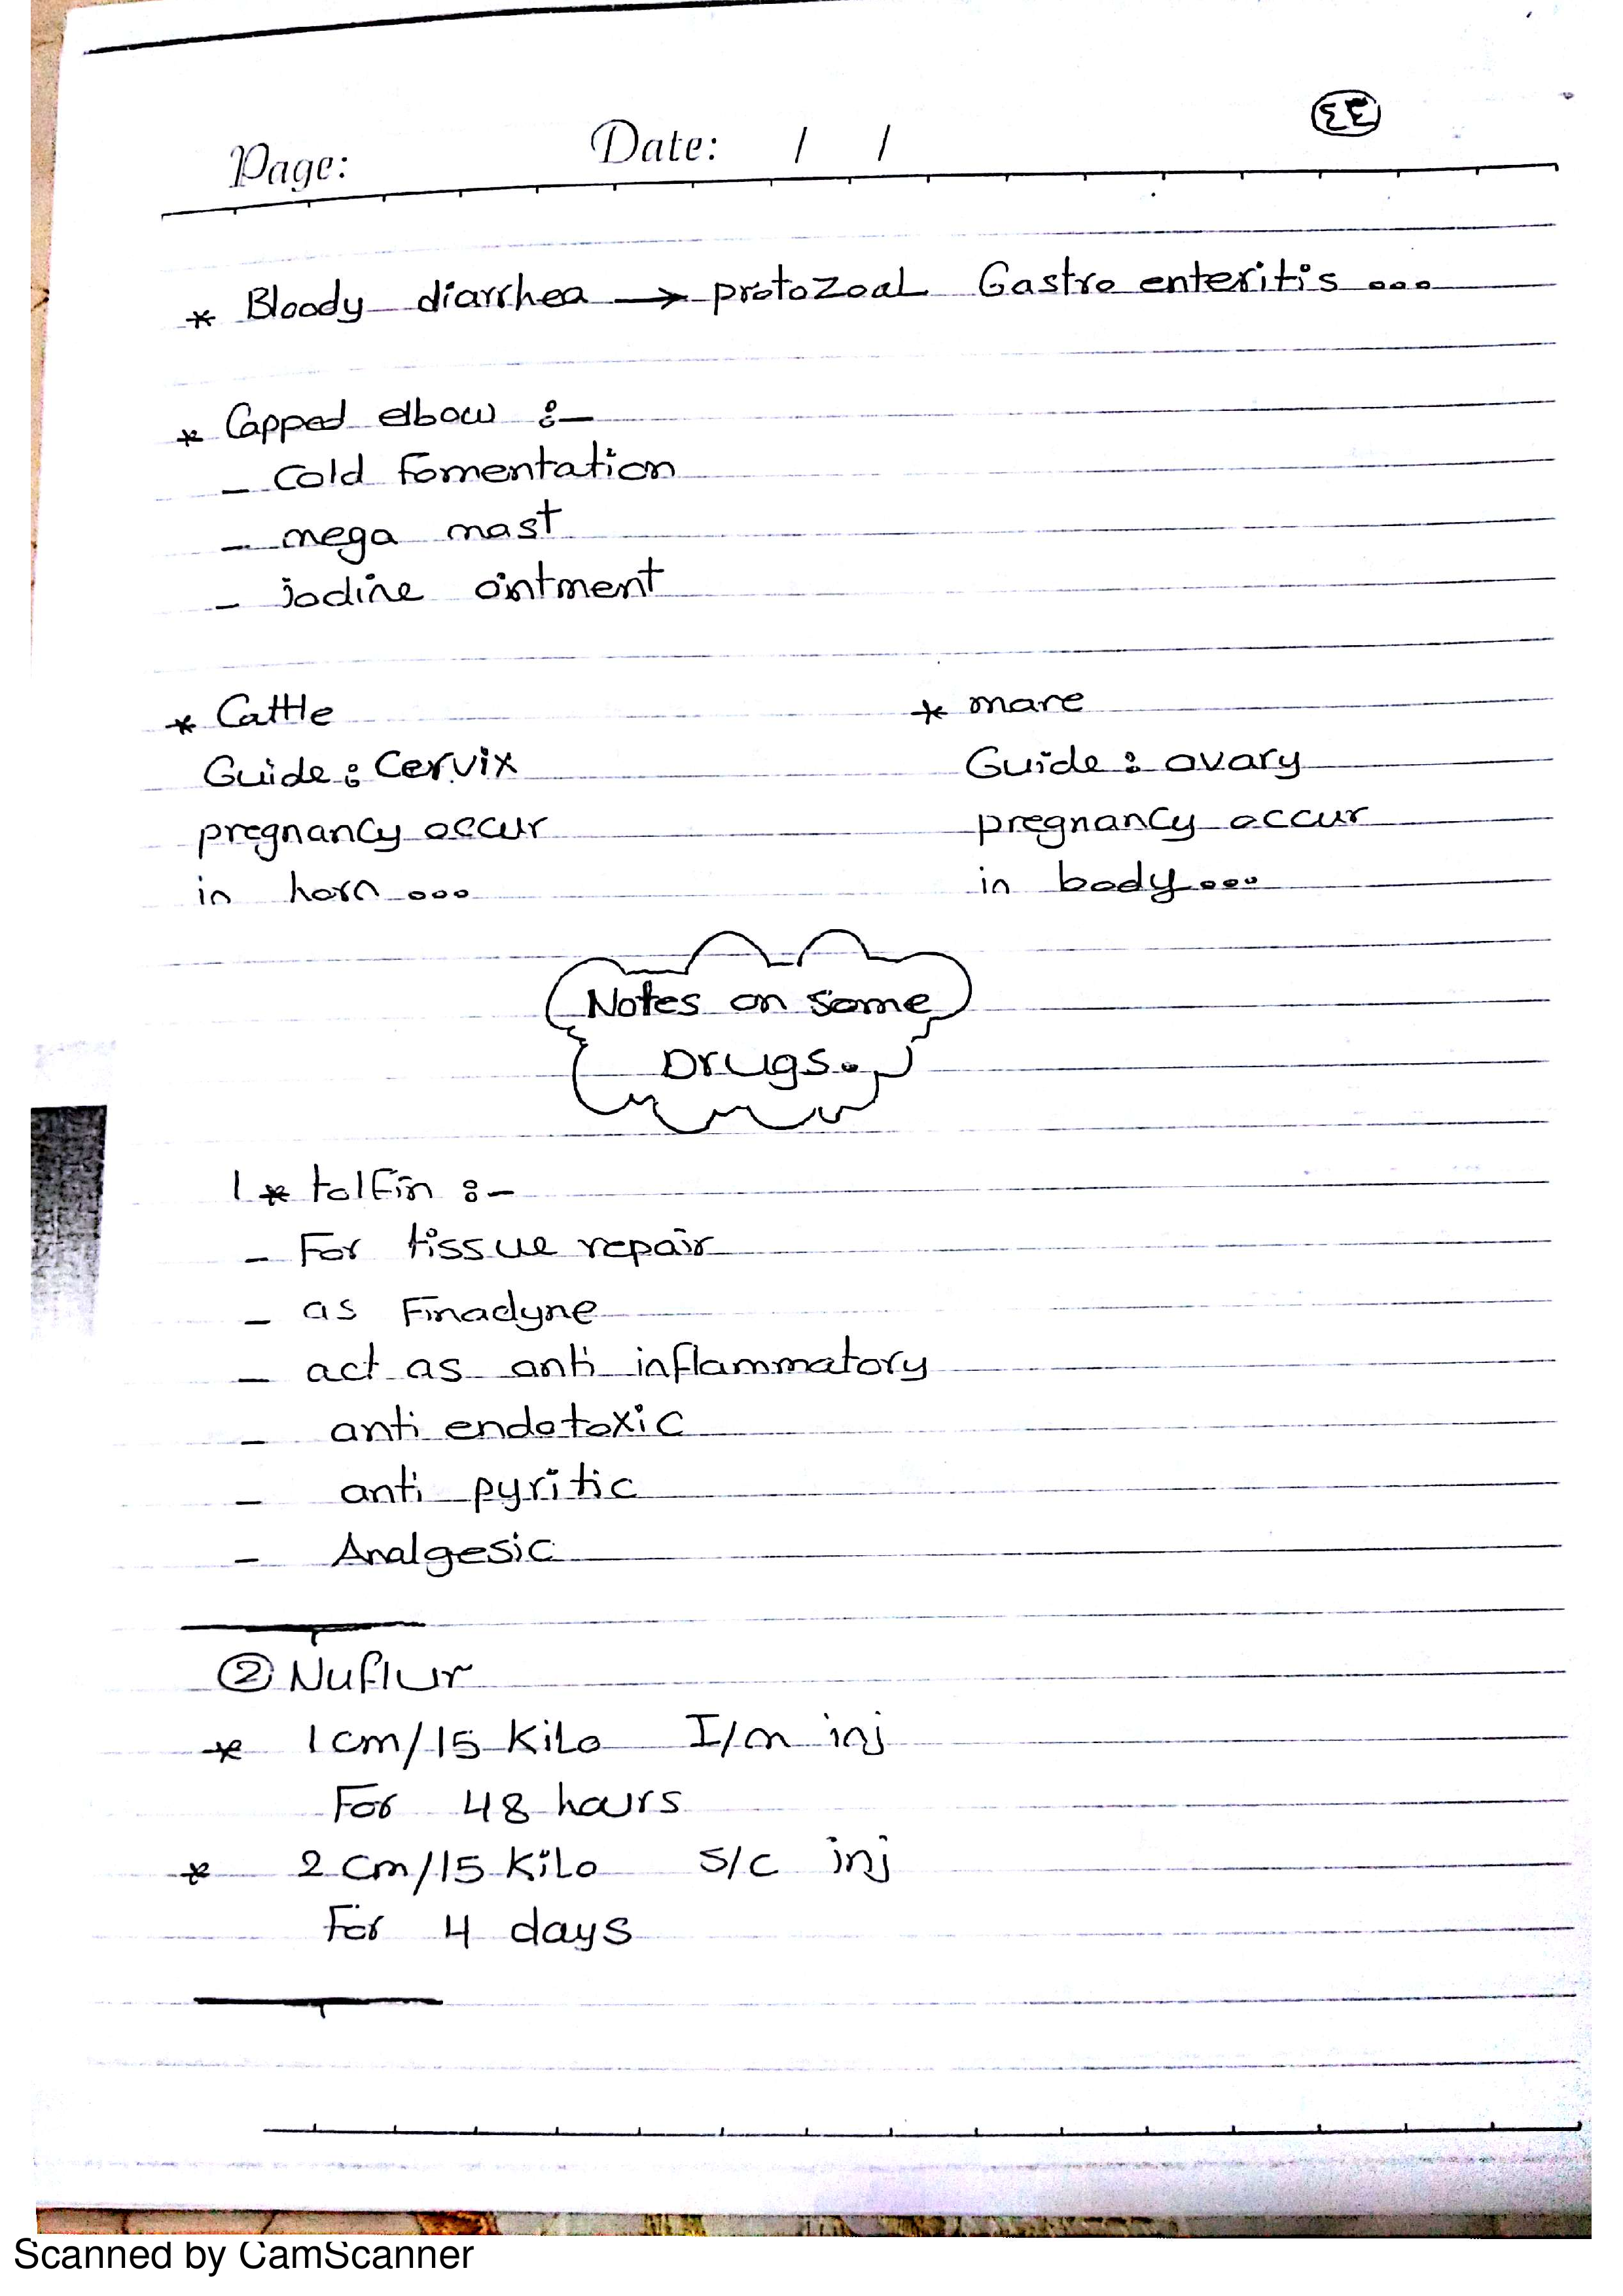 ٤٤
Page: Date: / /
* Bloody diarrhea → protozoal Gastro enteritis ...
* Capped elbow :-
- cold fomentation
- mega mast
- iodine ointment
* Cattle
Guide : Cervix
pregnancy occur
in horn ...
* mare
Guide : ovary
pregnancy occur
in body ...
Notes on some
Drugs.
1 * tolfin :-
- For tissue repair
- as Finadyne
- act as anti inflammatory
- anti endotoxic
- anti pyritic
- Analgesic
② Nuflur
* 1 cm/15 Kilo I/m inj
For 48 hours
* 2 cm/15 Kilo S/c inj
For 4 days
Scanned by CamScanner